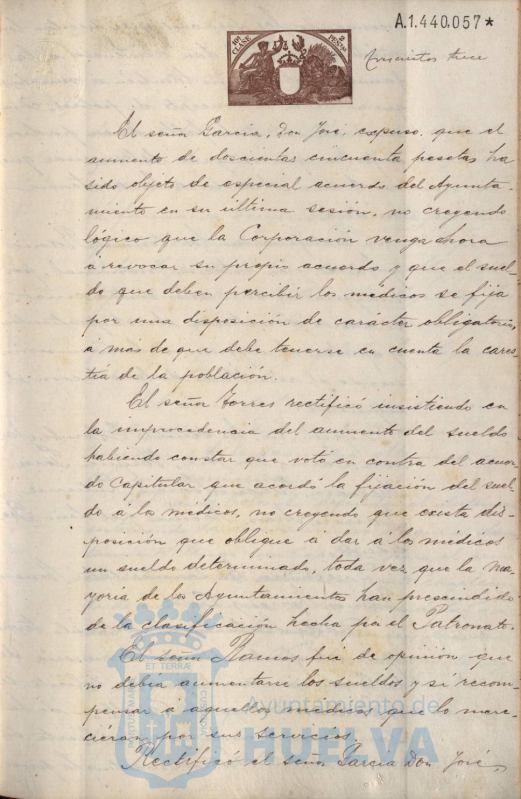 A.1.440.057*
10ª CLASE
2 PESTAS
trescientos trece
El señor García, don José, expuso que el
aumento de doscientas cincuenta pesetas ha
sido objeto de especial acuerdo del Ayunta-
miento en su última sesión, no creyendo
lógico que la Corporación venga ahora
á revocar su propio acuerdo y que el suel-
do que deben percibir los médicos se fija
por una disposición de carácter obligatorio,
á más de que debe tenerse en cuenta la cares-
tía de la población.
El señor Torres rectificó insistiendo en
la improcedencia del aumento del sueldo
habiendo constar que votó en contra del acuer-
do Capitular que acordó la fijación del suel-
do á los médicos, no creyendo que exista dis-
posición que obligue á dar á los médicos
un sueldo determinado, toda vez que la ma-
yoría de los Ayuntamientos han prescindido
de la clasificación hecha por el Patronato.
El señor Ramos fué de opinión que
no debía aumentarse los sueldos y sí recom-
pensar á aquellos médicos que lo mere-
cieran por sus servicios.
Rectificó el señor García don José,
ET TERRAE
Ayuntamiento de
HUELVA